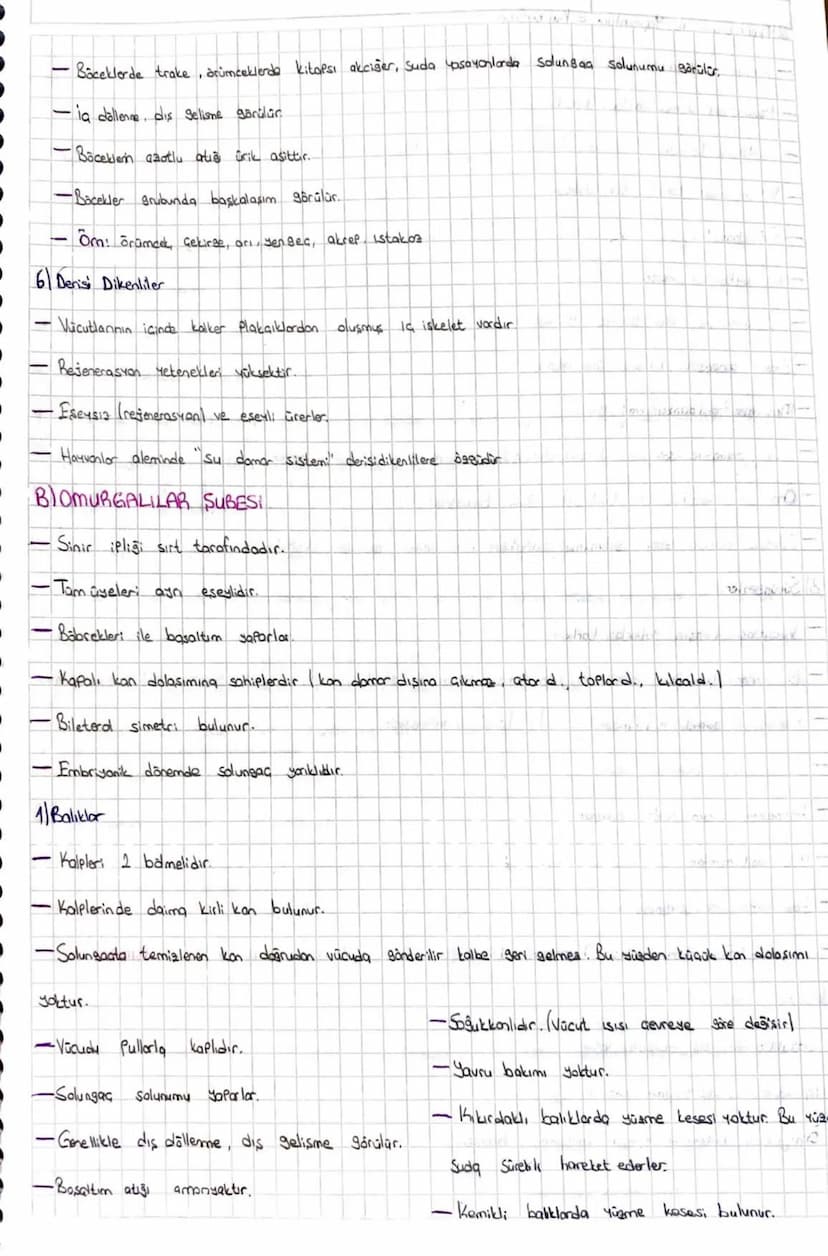 — Böceklerde trake, örümceklerde kitapsı akciğer, suda yaşayanlarda solungaç solunumu görülür.
— iç döllenme, dış gelişme görülür.
— Böceklerin azotlu atığı ürik asittir.
— Böcekler grubunda başkalaşım görülür.
— Örn: örümcek, çekirge, arı, yengeç, akrep, ıstakoz
6) Derisi Dikenliler
— Vücutlarının içinde kalker plakçıklardan oluşmuş iç iskelet vardır
— Rejenerasyon yetenekleri yüksektir.
— Eşeysiz (rejenerasyon) ve eşeyli ürerler.
— Hayvanlar aleminde "su damar sistemi" derisidikenlilere özgüdür
B) OMURGALILAR ŞUBESİ
— Sinir ipliği sırt tarafındadır.
— Tüm üyeleri ayrı eşeylidir.
— Böbrekleri ile boşaltım yaparlar.
— Kapalı kan dolaşımına sahiplerdir (kan damar dışına çıkmaz, atar d., toplar d., kılcal d.)
— Bileteral simetri bulunur.
— Embriyonik dönemde solungaç yarıklıdır.
1) Balıklar
— Kalpleri 2 bölmelidir.
— Kalplerinde daima kirli kan bulunur.
— Solungaçta temizlenen kan doğrudan vücuda gönderilir kalbe geri gelmez. Bu yüzden küçük kan dolaşımı
yoktur.
— Vücudu pullarla kaplıdır.
— Solungaç solunumu yaparlar.
— Genellikle dış döllenme, dış gelişme görülür.
— Boşaltım atığı amonyaktır.
— Soğukkanlıdır. (Vücut ısısı çevreye göre değişir)
— Yavru bakımı yoktur.
— Kıkırdaklı balıklarda yüzme kesesi yoktur. Bu yüz
suda sürekli hareket ederler.
— Kemikli balıklarda yüzme kesesi bulunur.